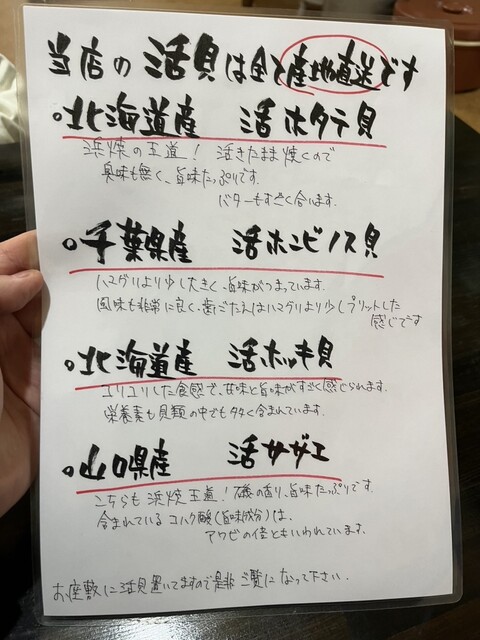 当店の活貝は全て産地直送です
○北海道産 活ホタテ貝
浜焼の王道! 活きたまま焼くので
臭味も無く、旨味たっぷりです。
バターもすごく合います。
○千葉県産 活ホンビノス貝
ハマグリより少し大きく、旨味がつまっています。
風味も非常に良く、歯ごたえはハマグリより少しプリットした
感じです
○北海道産 活ホッキ貝
コリコリした食感で、甘味と旨味がすごく感じられます。
栄養素も貝類の中でも多く含まれています。
○山口県産 活サザエ
こちらも浜焼王道!磯の香り、旨味たっぷりです。
含まれているコハク酸(旨味成分)は、
アワビの倍ともいわれています。
お座敷に活貝置いてますので是非ご覧になって下さい.